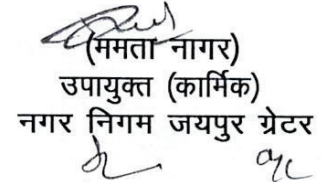 (ममता नागर)
उपायुक्त (कार्मिक)
नगर निगम जयपुर ग्रेटर